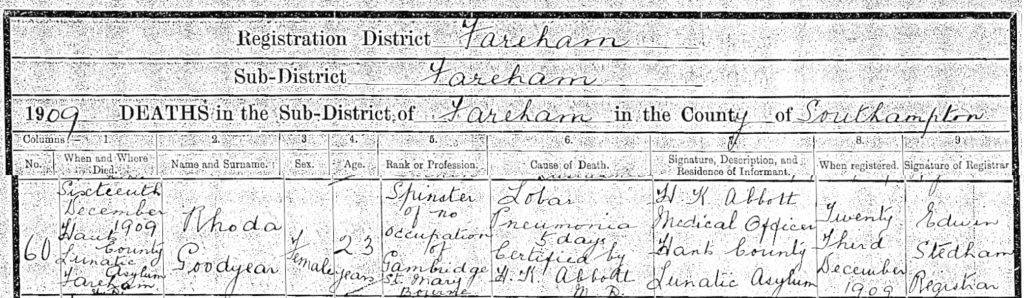 Registration District Fareham
Sub-District Fareham
1909 DEATHS in the Sub-District of Fareham in the County of Southampton
Columns:— 1. 2. 3. 4. 5. 6. 7. 8. 9
No. When and Where Died. Name and Surname. Sex. Age. Rank or Profession. Cause of Death. Signature, Description, and Residence of Informant. When registered. Signature of Registrar
60
Sixteenth
December
1909
Hants
County
Lunatic
Asylum
Fareham
Rhoda
Goodyear
Female
23
years
Spinster
of no
occupation
of
Gambridge
St. Mary
Bourne
Lobar
Pneumonia
5 days
Certified by
H. K. Abbott
M. D.
H. K. Abbott
Medical Officer
Hants County
Lunatic Asylum
Twenty
Third
December
1909
Edwin
Stedham
Registrar